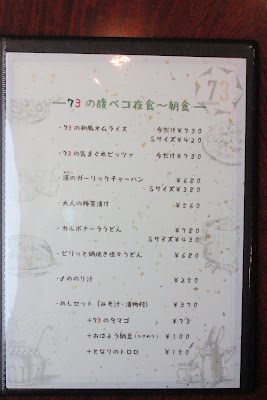 73
73の腹ペコ夜食〜朝食
・73の和風オムライス 今だけ¥730
Sサイズ¥420
・73の気まぐれピッツァ 今だけ¥730
・漢のガーリックチャーハン ¥680
Sサイズ¥380
・大人の梅茶漬け ¥560
・カルボナーラうどん ¥780
Sサイズ¥430
・ピリッと鍋焼き坦々うどん ¥680
・〆ののり汁 ¥250
・めしセット（みそ汁・漬物付） ¥370
+73のタマゴ ¥73
+おはよう納豆 ¥100
+となりのトロロ ¥150